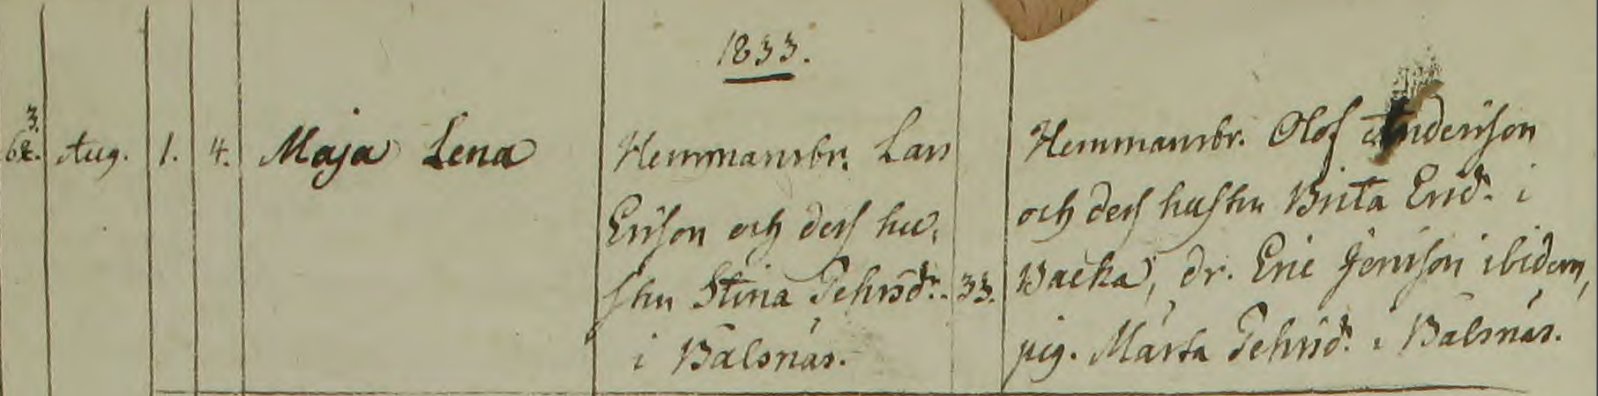 1833.
3.
62. Aug. 1. 4. Maja Lena
Hemmansbr. Lars
Ersson och dess hu,
stru Stina Pehrsdr. 33.
i Bälsnäs.
Hemmansbr. Olof Andersson
och dess hustru Brita Ersd. i
Backa, dr. Eric Jönsson ibidem,
pig. Märta Pehrsdr. i Bälsnäs.